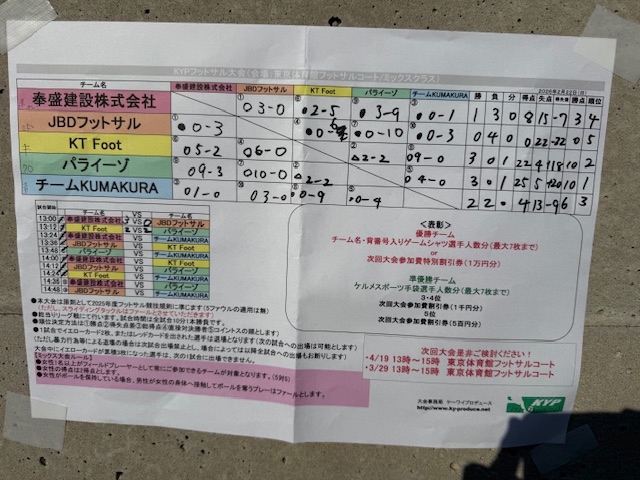 KYPフットサル大会(会場:東京体育館フットサルコート/ミックスクラス)
2026年2月22日(日)
チーム名 奉盛建設株式会社 JBDフットサル KT Foot パライーゾ チームKUMAKURA 勝 負 分 得点 失点 得失差 勝点 順位
奉盛建設株式会社 ① ○3-0 ⑥ ●2-5 ⑨ ●3-9 ③ ●0-1 1 3 0 8 15 -7 3 4
JBDフットサル ① ●0-3 ④ ●0-6 ⑦ ●0-10 ⑩ ●0-3 0 4 0 0 22 -22 0 5
KT Foot ⑥ ○5-2 ④ ○6-0 ② △2-2 ⑧ ○9-0 3 0 1 22 4 18 10 2
パライーゾ ⑨ ○9-3 ⑦ ○10-0 ② △2-2 ⑤ ○4-0 3 0 1 25 5 +20 10 1
チームKUMAKURA ③ ○1-0 ⑩ ○3-0 ⑧ ●0-9 ⑤ ●0-4 2 2 0 4 13 -9 6 3
試合開始 チーム名 VS チーム名
13:00 奉盛建設株式会社 3 VS 0 JBDフットサル
13:12 KT Foot 2 VS 2 パライーゾ
13:24 奉盛建設株式会社 VS チームKUMAKURA
13:36 JBDフットサル VS KT Foot
13:48 パライーゾ VS チームKUMAKURA
14:00 奉盛建設株式会社 VS KT Foot
14:12 JBDフットサル VS パライーゾ
14:24 KT Foot VS チームKUMAKURA
14:36 奉盛建設株式会社 VS パライーゾ
14:48 JBDフットサル VS チームKUMAKURA
<表彰>
優勝チーム
チーム名・背番号入りゲームシャツ選手人数分(最大7枚まで)
or
次回大会参加費特別割引券(1万円分)
準優勝チーム
ケルメスポーツ手袋選手人数分(最大7枚まで)
3・4位
次回大会参加費割引券(1千円分)
5位
次回大会参加費割引券(5百円分)
●本大会は原則として2025年度フットサル競技規則に準じます(5ファウルの適用は無)
(ただし、スライディングタックルはファールとさせていただきます)
●担当リーグ戦にて行います。試合時間は全試合10分1本勝負です。
●順位決定方法は①勝点②得失点差③総得点④直接対決勝者⑤コイントスの順とします
●1試合でイエローカード2枚、またはレッドカードを出された選手は退場となります(次の試合への出場は可能とします)
(ただし暴力行為等による退場の場合は次試合出場禁止とし、場合によっては以降全試合への出場もお断りします)
大会中にイエローカードが累積3枚になった選手は、次の1試合に出場できません。
【ミックス大会ルール】
●女性1名以上がフィールドプレーヤーとして常にご参加できるチームが対象となります。(5対5)
●女性の得点は2得点とします。
●女性がボールを保持している場合、男性が女性の身体へ接触してボールを奪うプレーはファールとします。
次回大会是非ご検討ください!
・4/19 13時~15時 東京体育館フットサルコート
・3/29 13時~15時 東京体育館フットサルコート
大会事務局 ケーワイプロデュース
http://www.ky-produce.net
KYP